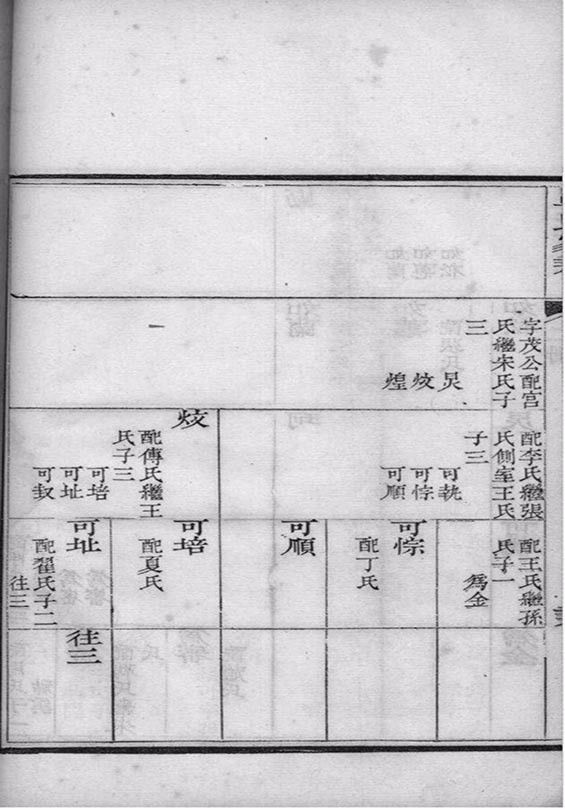 字茂公配宫
氏繼宋氏子
三
炅
炆
煌
配李氏繼張
氏側室王氏
子三
可㧞
可悰
可順
炆
配傅氏繼王
氏子三
可培
可址
可㪇
配王氏繼孫
氏子一
為金
可悰
配丁氏
可順
可培
配夏氏
可址
配翟氏子二
往三
往三